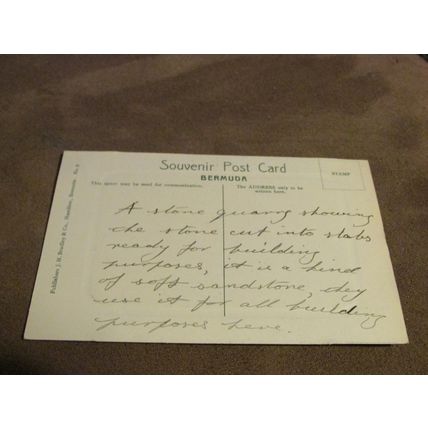 Souvenir Post Card
BERMUDA
STAMP
This space may be used for communication.
The ADDRESS only to be
written here.
Publishers J. H. Bradley & Co., Hamilton, Bermuda No. 9
A stone quarry showing
the stone cut into slabs
ready for building
purposes, it is a kind
of soft sandstone, they
use it for all building
purposes here.